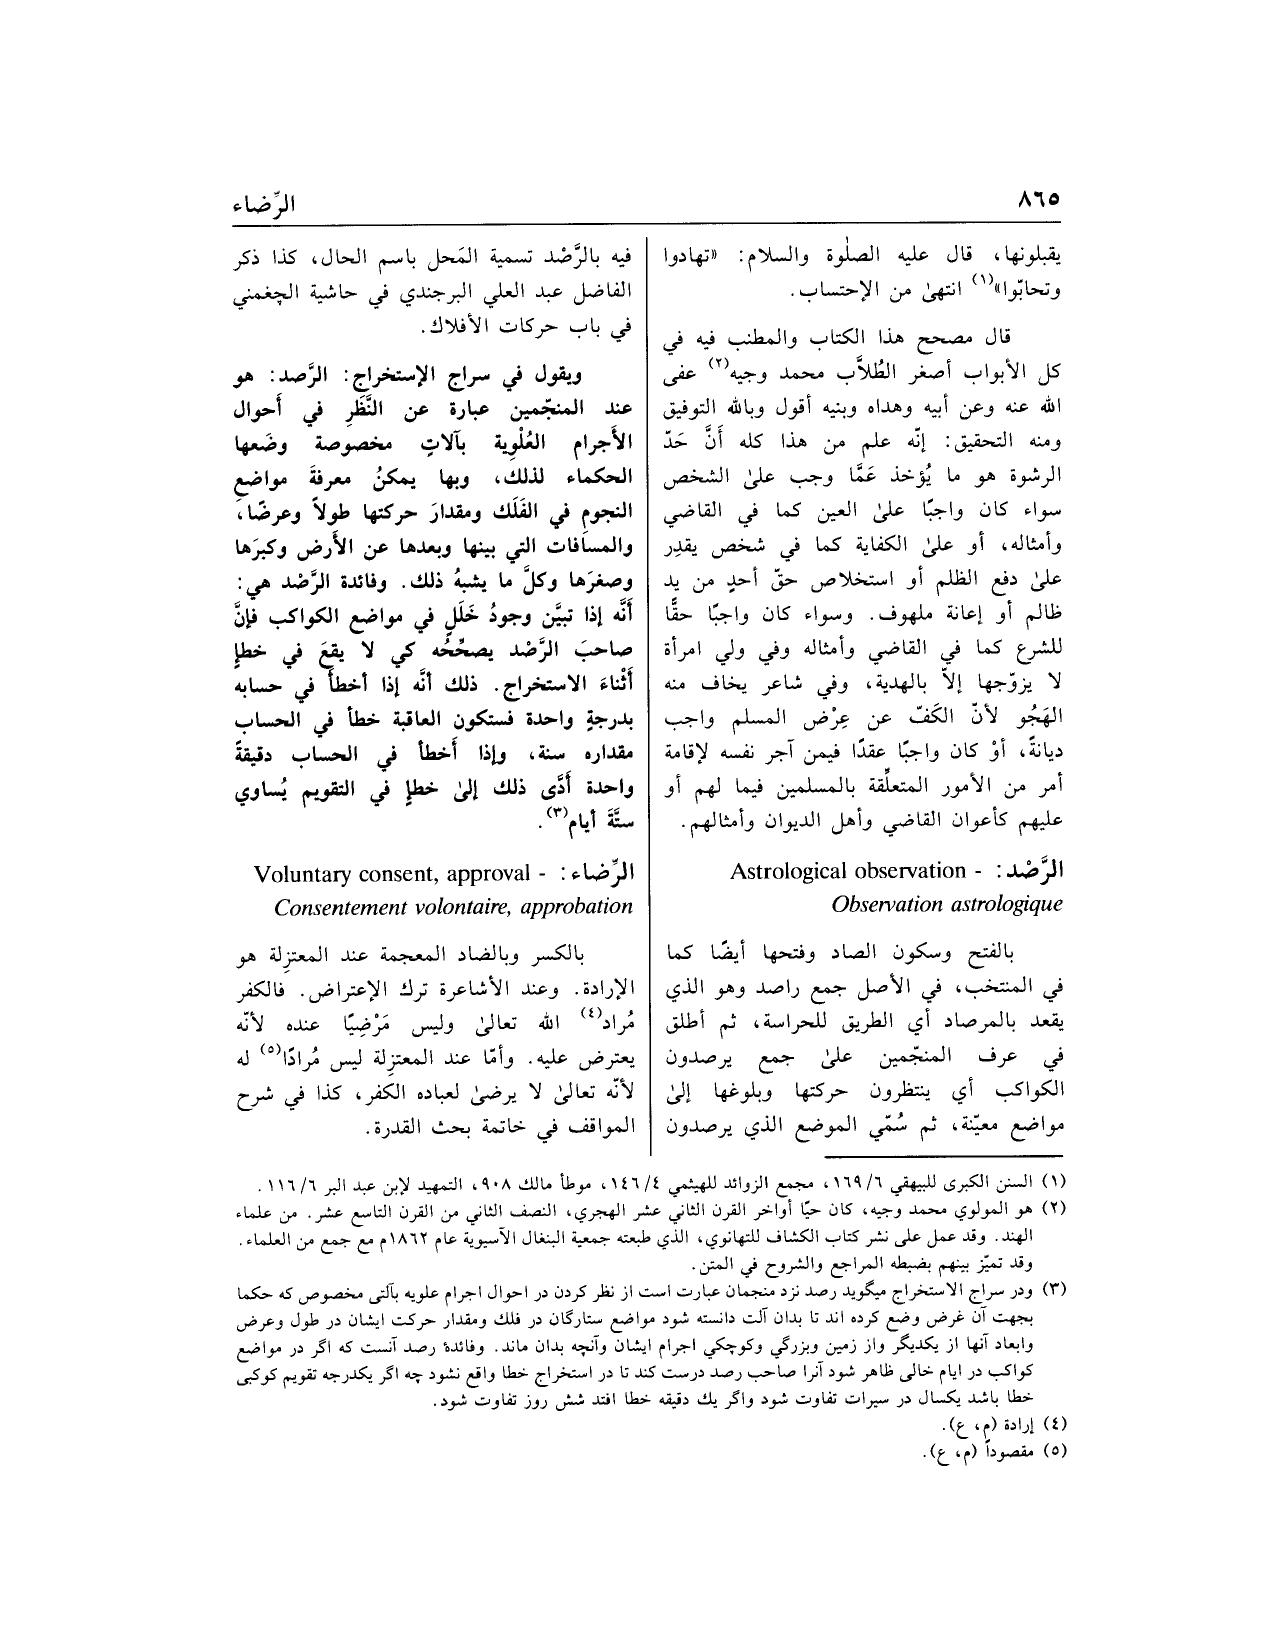 ٨٦٥
الرِّضاء
يقبلونها، قال عليه الصلٰوة والسلام: «تهادوا
وتحابّوا»(١) انتهىٰ من الإحتساب.
قال مصحح هذا الكتاب والمطنب فيه في
كل الأبواب أصغر الطُلاَّب محمد وجيه(٢) عفى
الله عنه وعن أبيه وهداه وبنيه أقول وبالله التوفيق
ومنه التحقيق: إنّه علم من هذا كله أنَّ حَدّ
الرشوة هو ما يُؤخذ عَمَّا وجب علىٰ الشخص
سواء كان واجبًا علىٰ العين كما في القاضي
وأمثاله، أو علىٰ الكفاية كما في شخص يقدِر
علىٰ دفع الظلم أو استخلاص حقّ أحدٍ من يد
ظالم أو إعانة ملهوف. وسواء كان واجبًا حقًّا
للشرع كما في القاضي وأمثاله وفي ولي امرأة
لا يزوّجها إلاّ بالهدية، وفي شاعر يخاف منه
الهَجُو لأنّ الكَفّ عن عِرْض المسلم واجب
ديانةً، أوْ كان واجبًا عقدًا فيمن آجر نفسه لإقامة
أمر من الأمور المتعلِّقة بالمسلمين فيما لهم أو
عليهم كأعوان القاضي وأهل الديوان وأمثالهم.
الرَّصْد: - Astrological observation
Observation astrologique
بالفتح وسكون الصاد وفتحها أيضًا كما
في المنتخب، في الأصل جمع راصد وهو الذي
يقعد بالمرصاد أي الطريق للحراسة، ثم أطلق
في عرف المنجّمين علىٰ جمع يرصدون
الكواكب أي ينتظرون حركتها وبلوغها إلىٰ
مواضع معيّنة، ثم سُمّي الموضع الذي يرصدون
فيه بالرَّصْد تسمية المَحل باسم الحال، كذا ذكر
الفاضل عبد العلي البرجندي في حاشية الچغمني
في باب حركات الأفلاك.
ويقول في سراج الإستخراج: الرَّصد: هو
عند المنجّمين عبارة عن النَّظَرِ في أَحوال
الأَجرام العُلْوِية بآلاتٍ مخصوصة وضَعها
الحكماء لذلك، وبها يمكنُ معرفةَ مواضعِ
النجومِ في الفَلَك ومقدارَ حركتها طولاً وعرضًا،
والمسافات التي بينها وبعدها عن الأَرض وكبرَها
وصغرَها وكلَّ ما يشبهُ ذلك. وفائدة الرَّصْد هي:
أنَّه إذا تبيَّن وجودُ خَلَلٍ في مواضع الكواكب فإنَّ
صاحبَ الرَّصْد يصحِّحُه كي لا يقعَ في خطإٍ
أَثْناءَ الاستخراج. ذلك أنَّه إذا أخطأَ في حسابه
بدرجةٍ واحدة فستكون العاقبة خطأ في الحساب
مقداره سنة، وإذا أَخطأ في الحساب دقيقةً
واحدة أَدَّى ذلك إلىٰ خطإٍ في التقويم يُساوي
ستَّةَ أيام(٣).
الرِّضاء: - Voluntary consent, approval
Consentement volontaire, approbation
بالكسر وبالضاد المعجمة عند المعتزِلة هو
الإرادة. وعند الأشاعرة ترك الإعتراض. فالكفر
مُراد(٤) الله تعالىٰ وليس مَرْضِيًا عنده لأنّه
يعترض عليه. وأمّا عند المعتزِلة ليس مُرادًا(٥) له
لأنّه تعالىٰ لا يرضىٰ لعباده الكفر، كذا في شرح
المواقف في خاتمة بحث القدرة.
(١) السنن الكبرى للبيهقي ٦/ ١٦٩، مجمع الزوائد للهيثمي ٤/ ١٤٦، موطأ مالك ٩٠٨، التمهيد لإبن عبد البر ٦/ ١١٦.
(٢) هو المولوي محمد وجيه، كان حيًا أواخر القرن الثاني عشر الهجري، النصف الثاني من القرن التاسع عشر. من علماء
الهند. وقد عمل على نشر كتاب الكشاف للتهانوي، الذي طبعته جمعية البنغال الآسيوية عام ١٨٦٢م مع جمع من العلماء.
وقد تميّز بينهم بضبطه المراجع والشروح في المتن.
(٣) ودر سراج الاستخراج ميگويد رصد نزد منجمان عبارت است از نظر كردن در احوال اجرام علويه بآلتى مخصوص كه حكما
بجهت آن غرض وضع كرده اند تا بدان آلت دانسته شود مواضع ستارگان در فلك ومقدار حركت ايشان در طول وعرض
وابعاد آنها از يكديگر واز زمين وبزرگي وكوچكي اجرام ايشان وآنچه بدان ماند. وفائدهٔ رصد آنست كه اگر در مواضع
كواكب در ايام خالى ظاهر شود آنرا صاحب رصد درست كند تا در استخراج خطا واقع نشود چه اگر يكدرجه تقويم كوكبى
خطا باشد يكسال در سيرات تفاوت شود واگر يك دقيقه خطا افتد شش روز تفاوت شود.
(٤) إرادة (م، ع).
(٥) مقصوداً (م، ع).